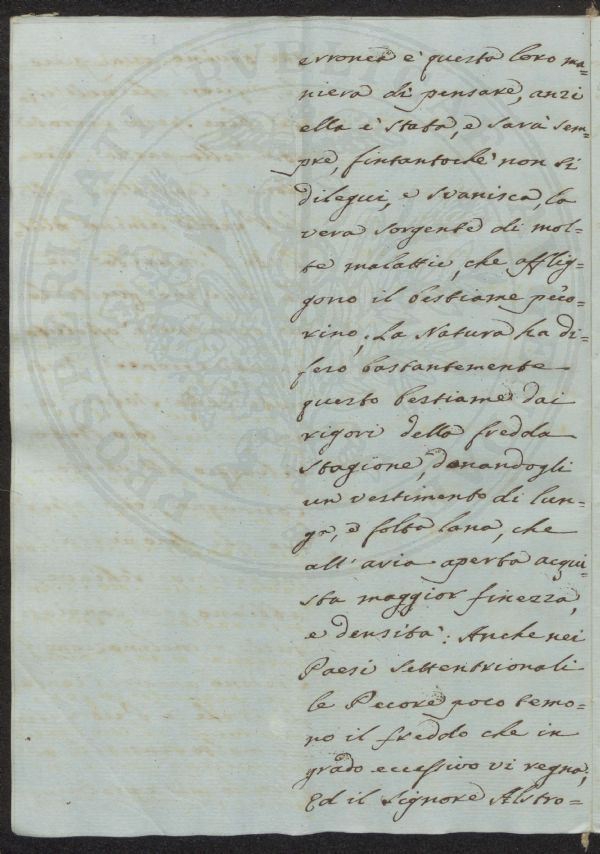 erronea è questa loro ma=
niera di pensare, anzi
ella è stata, e sarà sem=
pre, fintantochè non si
dilegui, e svanisca, la
vera sorgente di mol=
te malattie, che afflig=
gono il bestiame peco=
rino; La Natura ha di=
feso bastantemente
questo bestiame dai
rigori della fredda
stagione, donandogli
un vestimento di lun=
ga, e folta lana, che
all'aria aperta acqui=
sta maggior finezza,
e densità: Anche nei
Paesi Settentrionali
le Pecore poco temo=
no il freddo che in
grado eccessivo vi regna;
Ed il Signore Alstro=
PVBLICAE
PROSPERITATI